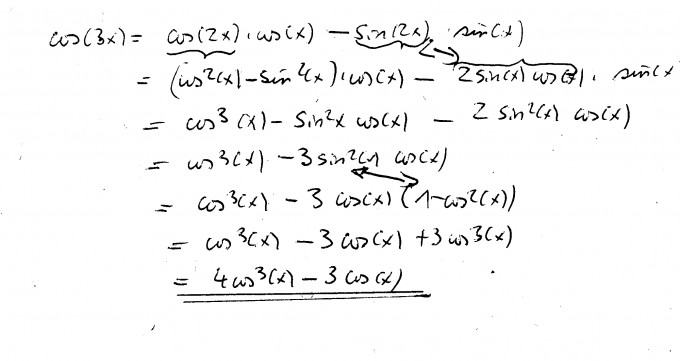 cos(3x) = cos(2x) · cos(x) − sin(2x) · sin(x)
= (cos²(x) − sin²(x)) · cos(x) − 2 sin(x) cos(x) · sin(x
= cos³(x) − sin²x cos(x) − 2 sin²(x) cos(x)
= cos³(x) − 3 sin²(x) cos(x)
= cos³(x) − 3 cos(x) (1−cos²(x))
= cos³(x) − 3 cos(x) + 3 cos³(x)
= 4cos³(x) − 3 cos(x)